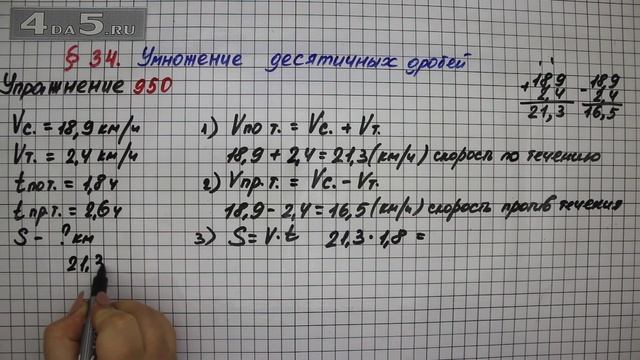 4DA5.RU
§ 34. Умножение десятичных дробей
Упражнение 950
Vс. = 18,9 км/ч
Vт. = 2,4 км/ч
t по т. = 1,8 ч
t пр. т. = 2,6 ч
S - ? км
21,3
1) V по т. = Vс. + Vт.
18,9 + 2,4 = 21,3 (км/ч) скорость по течению
2) V пр. т. = Vс. - Vт.
18,9 - 2,4 = 16,5 (км/ч) скорость против течения
3) S = V · t 21,3 · 1,8 =
+ 18,9
2,4
21,3
- 18,9
2,4
16,5